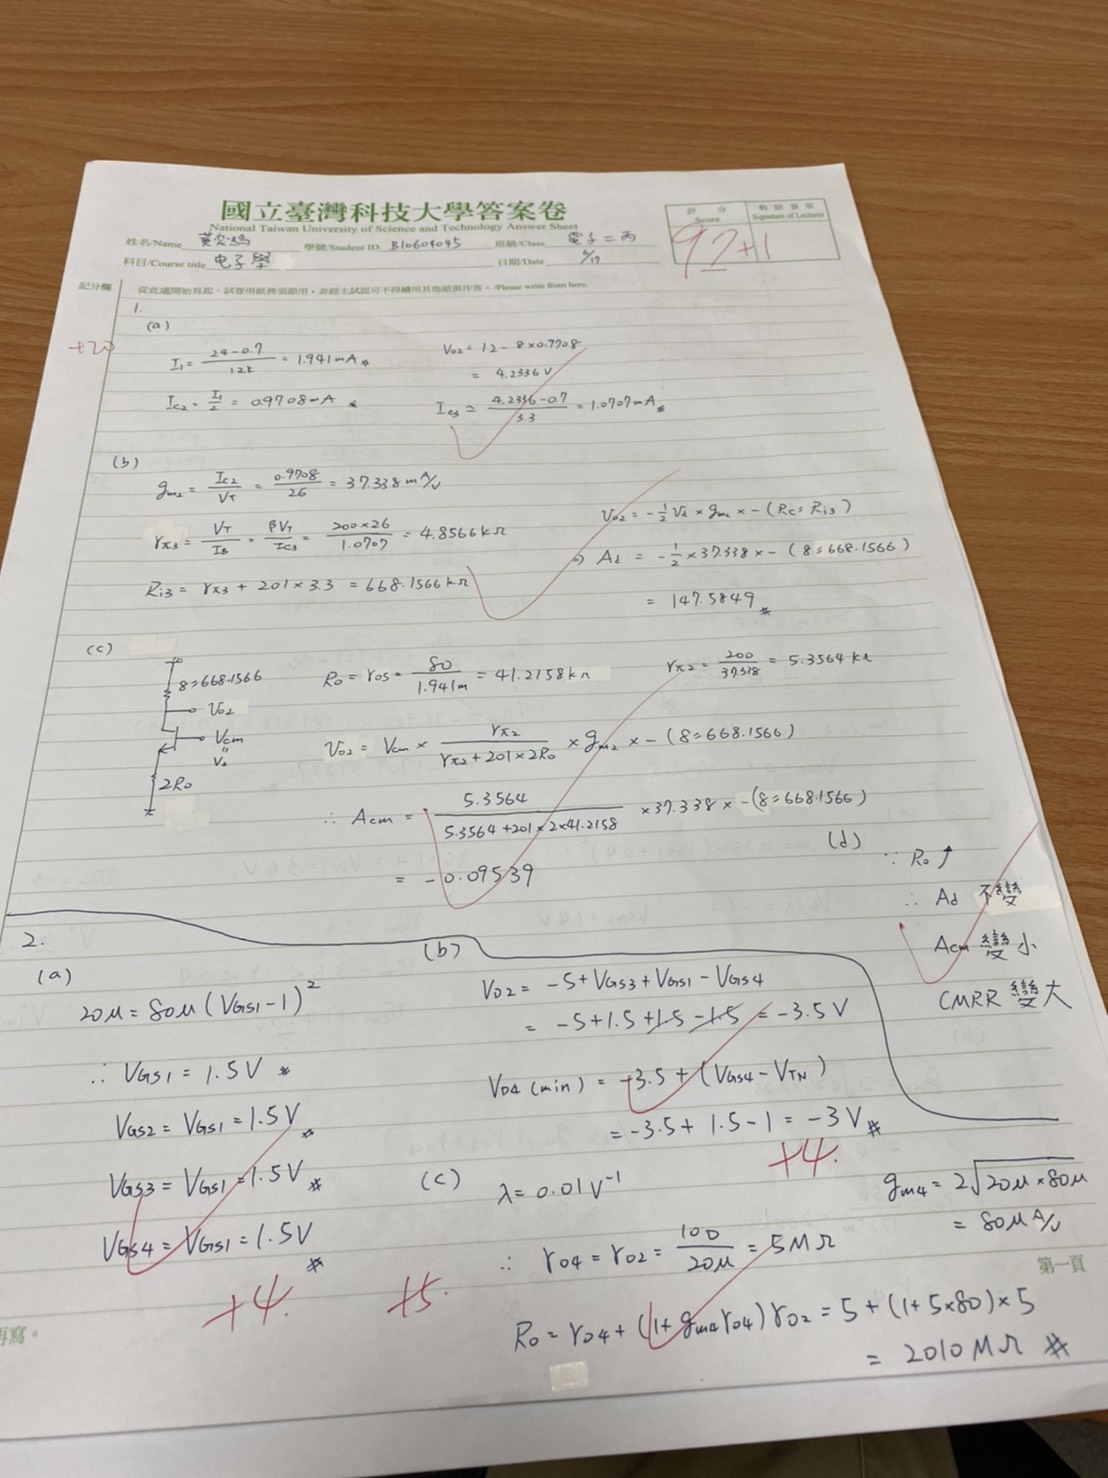 國立臺灣科技大學答案卷
National Taiwan University of Science and Technology Answer Sheet
姓名/Name 學號/Student ID B10604045 班級/Class 電子二丙
科目/Course title 电子學 日期/Date 6/17
評 分 Score 教師簽章 Signature of Lecturer
92+1
記分欄 從此處開始寫起,試卷用紙務須節用,非經主試認可不得續用其他紙張作答。/Please write from here.
+20
1.
(a)
I₁ = (24-0.7)/12k = 1.941mA *
I_C2 = I₁/2 = 0.9708mA *
V_O2 = 12 - 8×0.7708
= 4.2336V
I_C3 ≃ (4.2336-0.7)/3.3 = 1.0707mA *
(b)
g_m2 = I_C2/V_T = 0.9708/26 = 37.338 mA/V
r_π3 = V_T/I_B = βV_T/I_C3 = (200×26)/1.0707 = 4.8566kΩ
R_i3 = r_π3 + 201×3.3 = 668.1566kΩ
v_O2 = -½ V_d × g_m2 × -(R_C // R_i3)
⇒ A_d = -½ × 37.338 × -(8//668.1566)
= 147.5849 *
(c)
8//668.1566
V_O2
V_cm
"
V_2
2R_o
R_o = r_o5 = 80/1.941m = 41.2158kΩ
r_π2 = 200/37.338 = 5.3564kΩ
V_O2 = V_cm × r_π2/(r_π2 + 201×2R_o) × g_m2 × -(8//668.1566)
∴ A_cm = 5.3564/(5.3564+201×2×41.2158) × 37.338 × -(8//668.1566)
= -0.09539
(d)
∵ R_o ↑
∴ A_d 不變
A_cm 變小
CMRR 變大
2.
(a)
20μ = 80μ(V_GS1 - 1)²
∴ V_GS1 = 1.5V *
V_GS2 = V_GS1 = 1.5V *
V_GS3 = V_GS1 = 1.5V *
V_GS4 = V_GS1 = 1.5V *
+4.
(b)
V_D2 = -5 + V_GS3 + V_GS1 - V_GS4
= -5+1.5+1.5-1.5 = -3.5V
V_D4(min) = -3.5 + (V_GS4 - V_TN)
= -3.5 + 1.5 - 1 = -3V *
+4.
(c)
λ = 0.01V⁻¹
g_m4 = 2√(20μ×80μ)
= 80μA/V
∴ r_o4 = r_o2 = 100/20μ = 5MΩ
R_o = r_o4 + (1+g_m4 r_o4) r_o2 = 5 + (1+5×80)×5
= 2010MΩ *
+5.
第一頁
再寫。